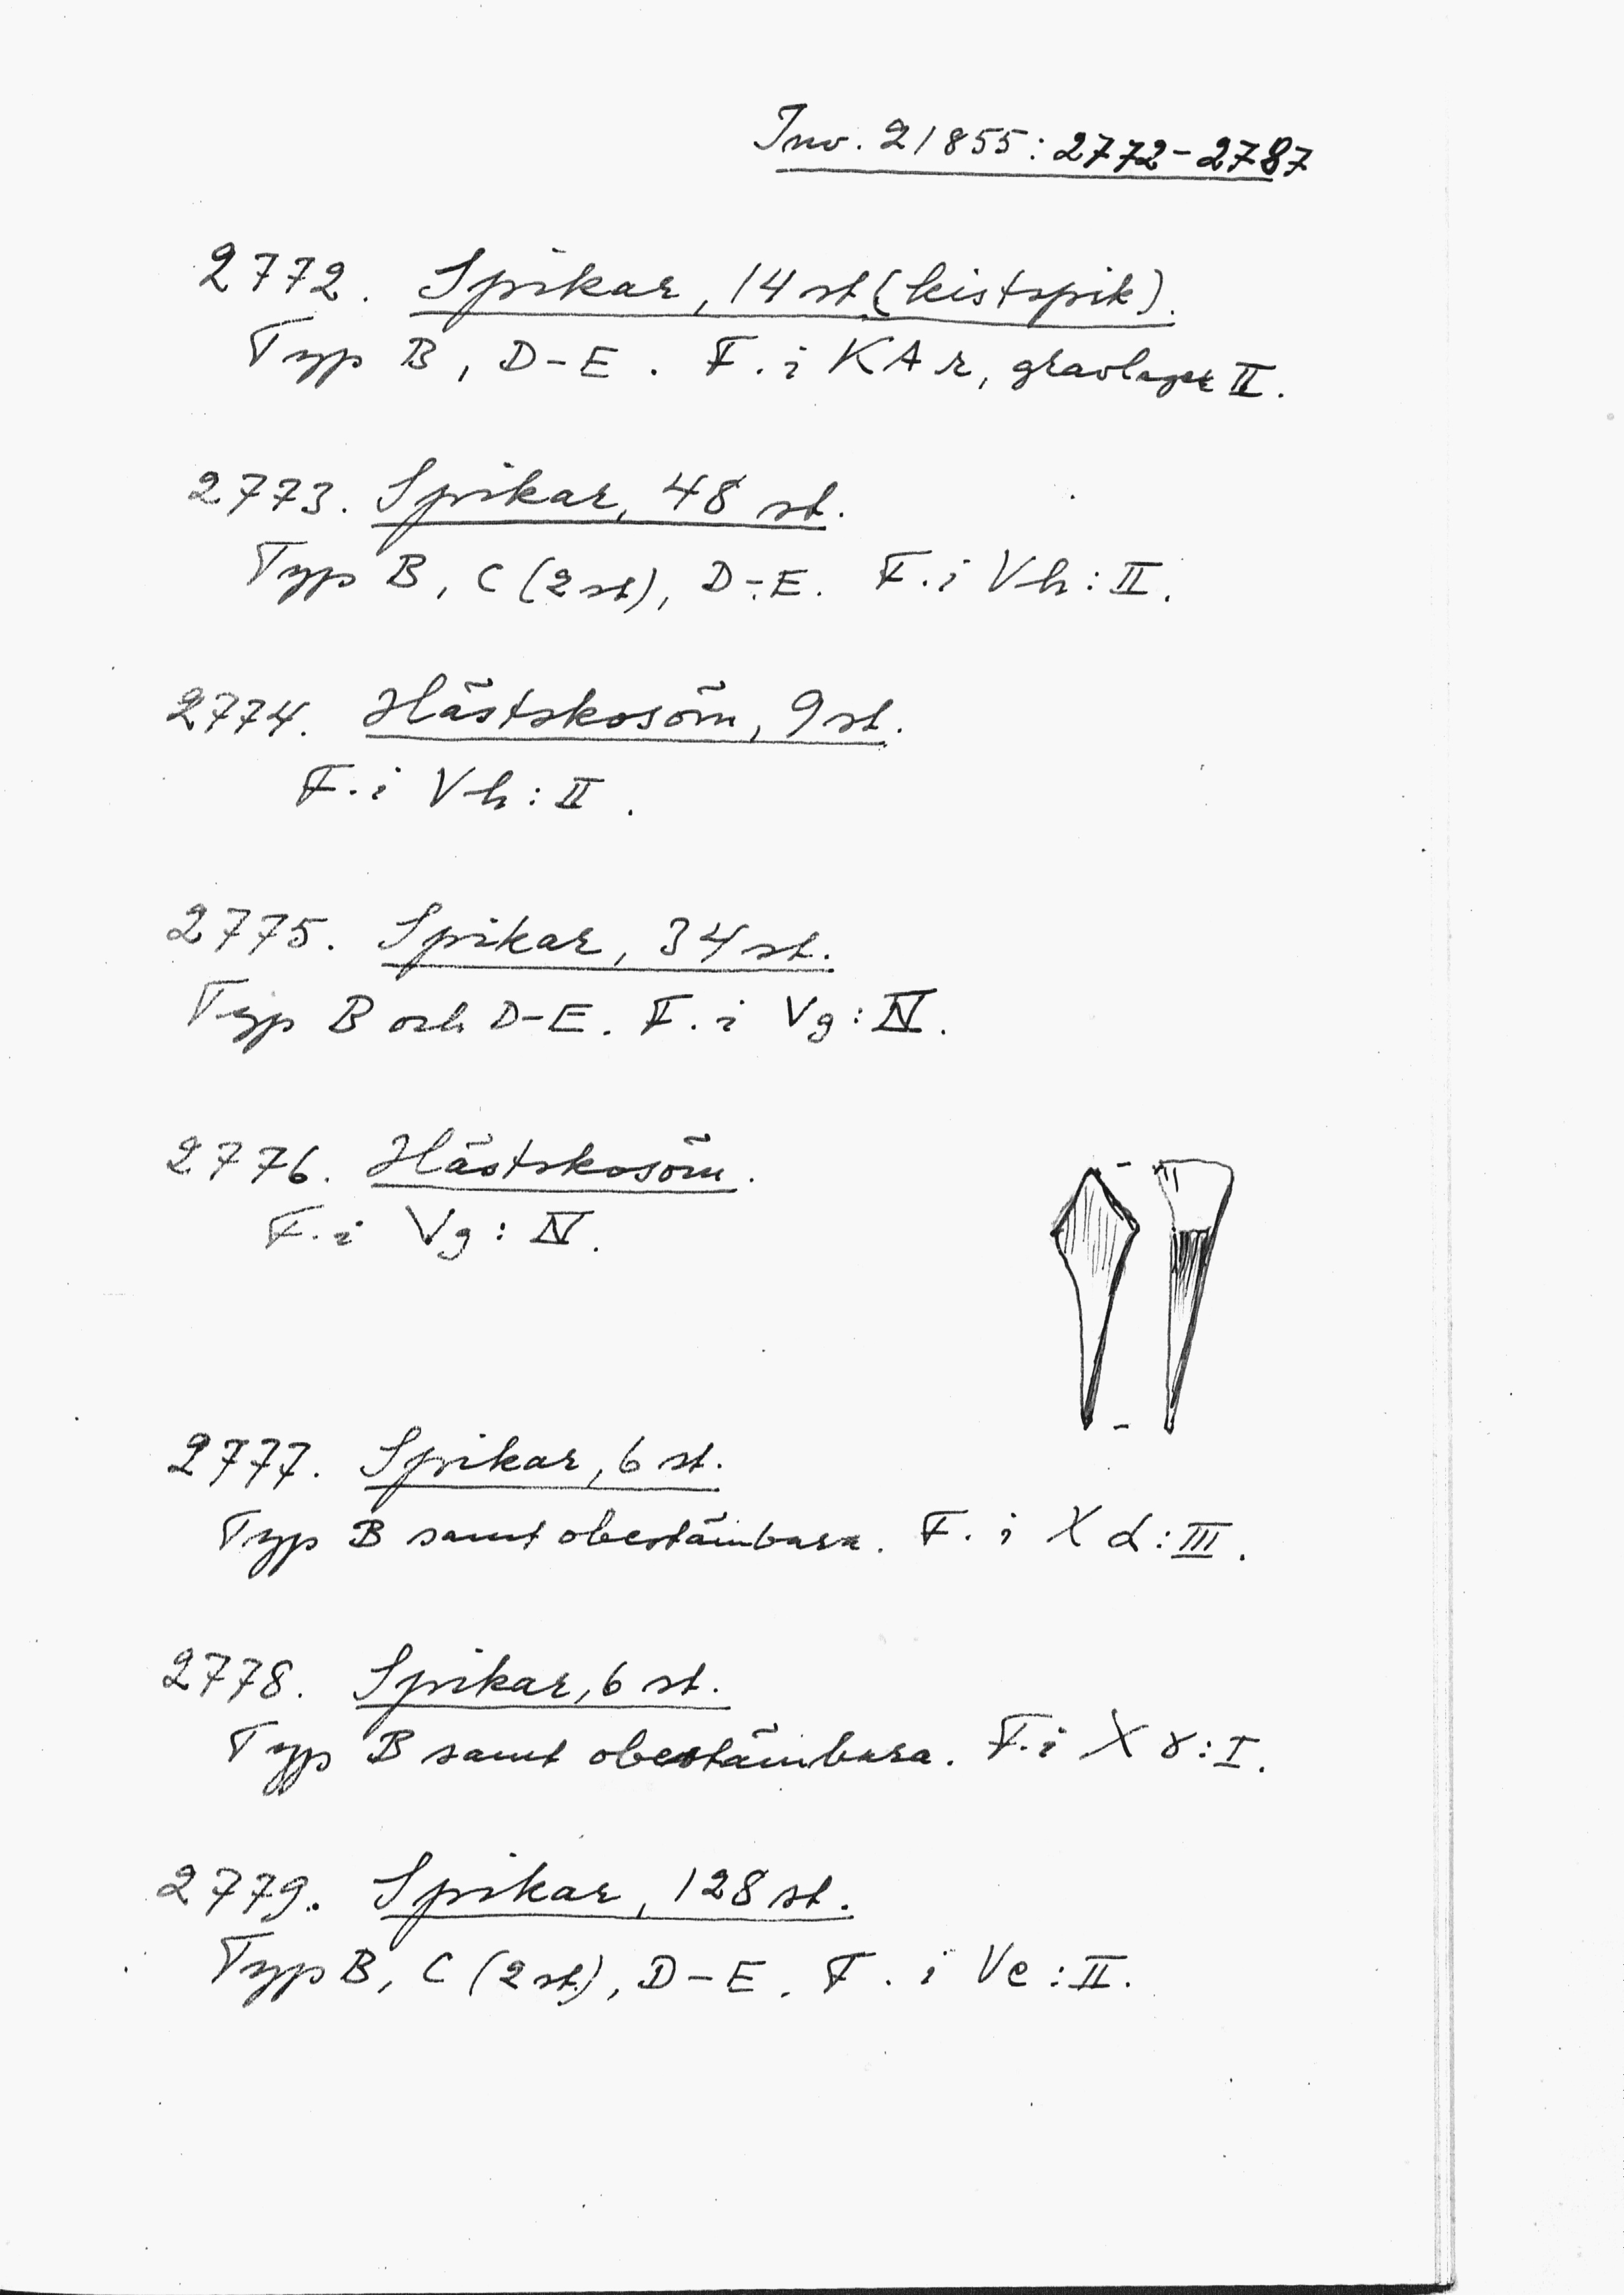 Inv. 21855:2772-2787
2772. Spikar, 14 st (kistspik).
Typ B, D-E. F. i KAr, gravlager II.
2773. Spikar, 48 st.
Typ B, C (2 st), D-E. F. i Vh:II.
2774. Hästskosöm, 9 st.
F. i Vh:II.
2775. Spikar, 34 st.
Typ B och D-E. F. i Vg:IV.
2776. Hästskosöm.
F. i Vg:IV.
2777. Spikar, 6 st.
Typ B samt obestämbara. F. i X α:III.
2778. Spikar, 6 st.
Typ B samt obestämbara. F. i X γ:I.
2779. Spikar, 128 st.
Typ B, C (2 st.), D-E. F. i Ve:II.